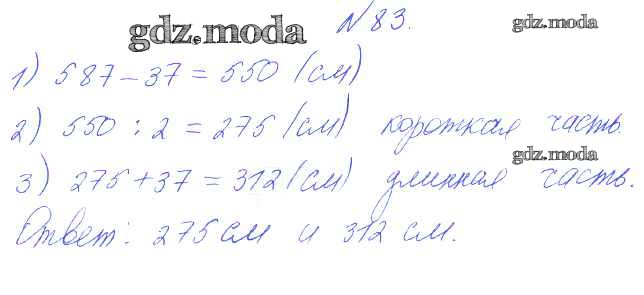 gdz.moda № 83. gdz.moda
1) 587 - 37 = 550 (см)
2) 550 : 2 = 275 (см) короткая часть.
gdz.moda
3) 275 + 37 = 312 (см) длинная часть.
Ответ: 275 см и 312 см.